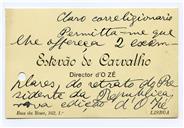 Claro correligionario
Permitta-me que
lhe offereça 2 exem-
Estevão de Carvalho
Director d'O ZÉ
plares, do retrato do Pre-
sidente da Republica,
nova edição d'O Zé
Rua da Rosa, 162, 1.º LISBOA